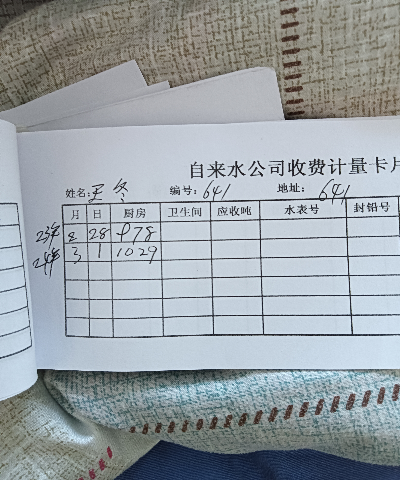 自来水公司收费计量卡片
姓名: 王冬 编号: 641 地址: 641
月 日 厨房 卫生间 应收吨 水表号 封铅号
23年 2 28 978
24年 3 1 1029